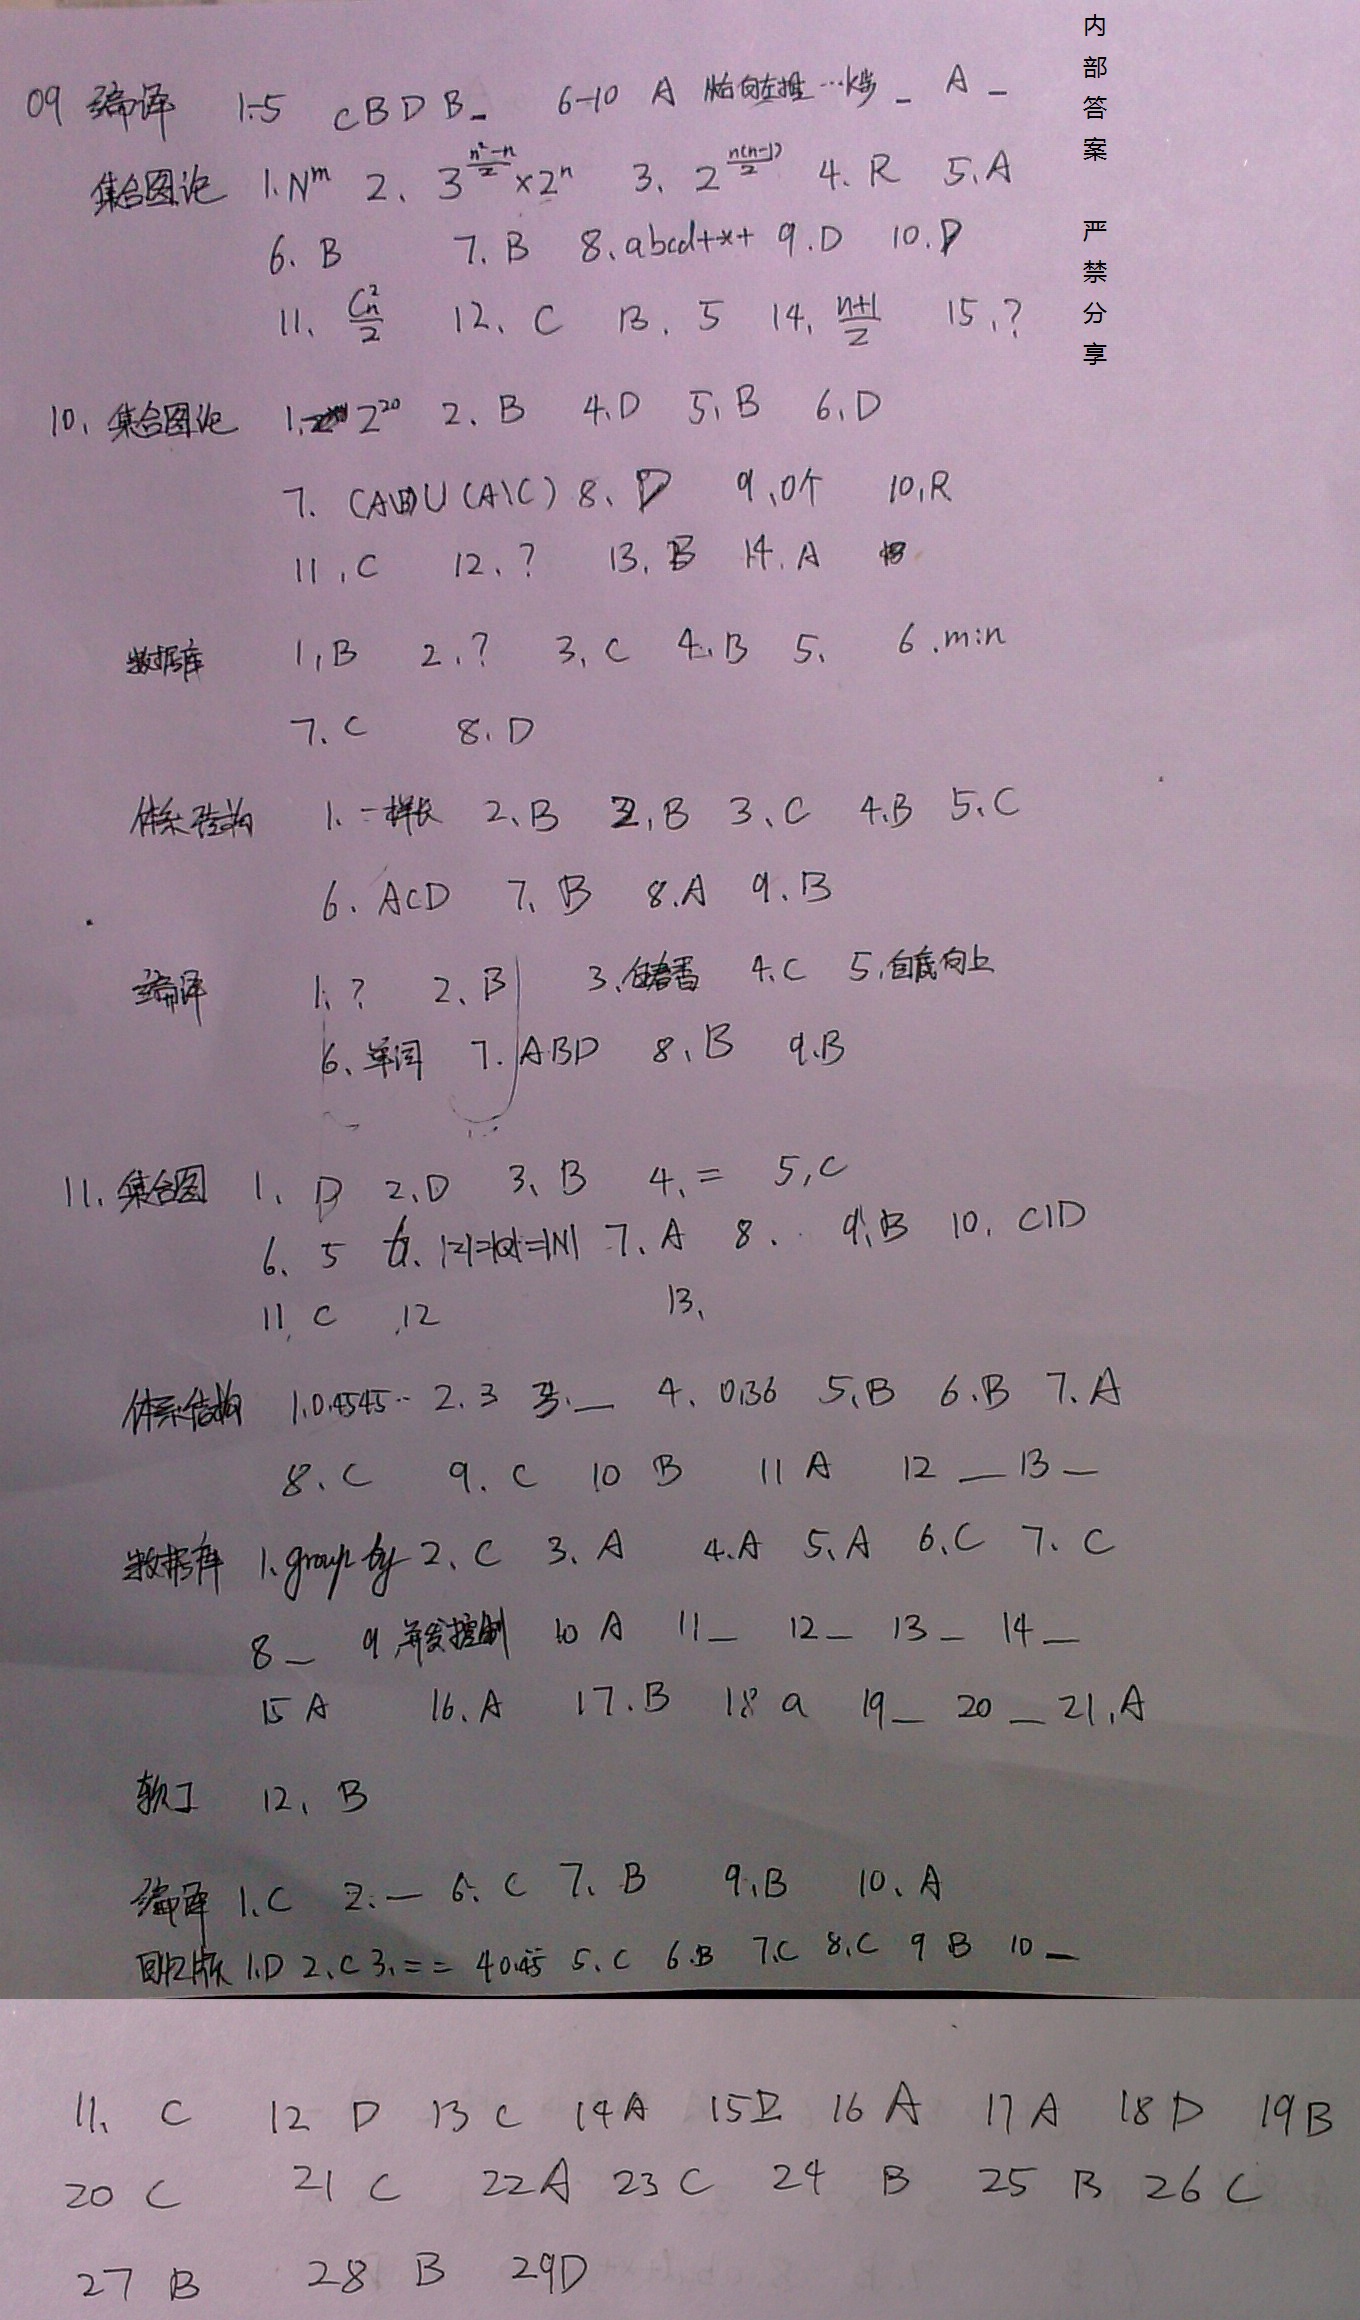 内部答案 严禁分享
09 编译 1-5 CBDB_ 6-10 A 向左推 … _ A _
集合图论 1. N^m 2、3^{\frac{n²-n}{2}}×2^n 3、2^{\frac{n(n-1)}{2}} 4、R 5、A
6、B 7、B 8、abcd+*+ 9.D 10.D
11、\frac{C_n^2}{2} 12、C 13、5 14、\frac{n+1}{2} 15、?
10、集合图论 1、2^{20} 2、B 4、D 5、B 6、D
7、(A\B)∪(A\C) 8、D 9、0个 10、R
11、C 12、? 13、B 14、A
数据库 1、B 2、? 3、C 4、B 5、 6、min
7、C 8、D
体系结构 1、一样长 2、B 2、B 3、C 4、B 5、C
6、ACD 7、B 8、A 9、B
编译 1、? 2、B 3、 4、C 5、自底向上
6、单词 7、ABD 8、B 9.B
11、集合图 1、D 2、D 3、B 4、= 5、C
6、5 |Z|=|Q|=|N| 7、A 8、 9、B 10、C|D
11、C 12 13、
体系结构 1.0.4545… 2、3 3、_ 4、0.36 5、B 6、B 7、A
8、C 9、C 10 B 11 A 12 _ 13 _
数据库 1、group by 2、C 3、A 4、A 5、A 6、C 7、C
8 _ 9 并发控制 10 A 11 _ 12 _ 13 _ 14 _
15 A 16、A 17、B 18 a 19 _ 20 _ 21、A
软工 12、B
编译 1、C 2、_ 6、C 7、B 9、B 10、A
回忆版 1.D 2、C 3、== 4 0.45 5、C 6、B 7、C 8、C 9 B 10 _
11、C 12 D 13 C 14 A 15 16 A 17 A 18 D 19 B
20 C 21 C 22 A 23 C 24 B 25 B 26 C
27 B 28 B 29D